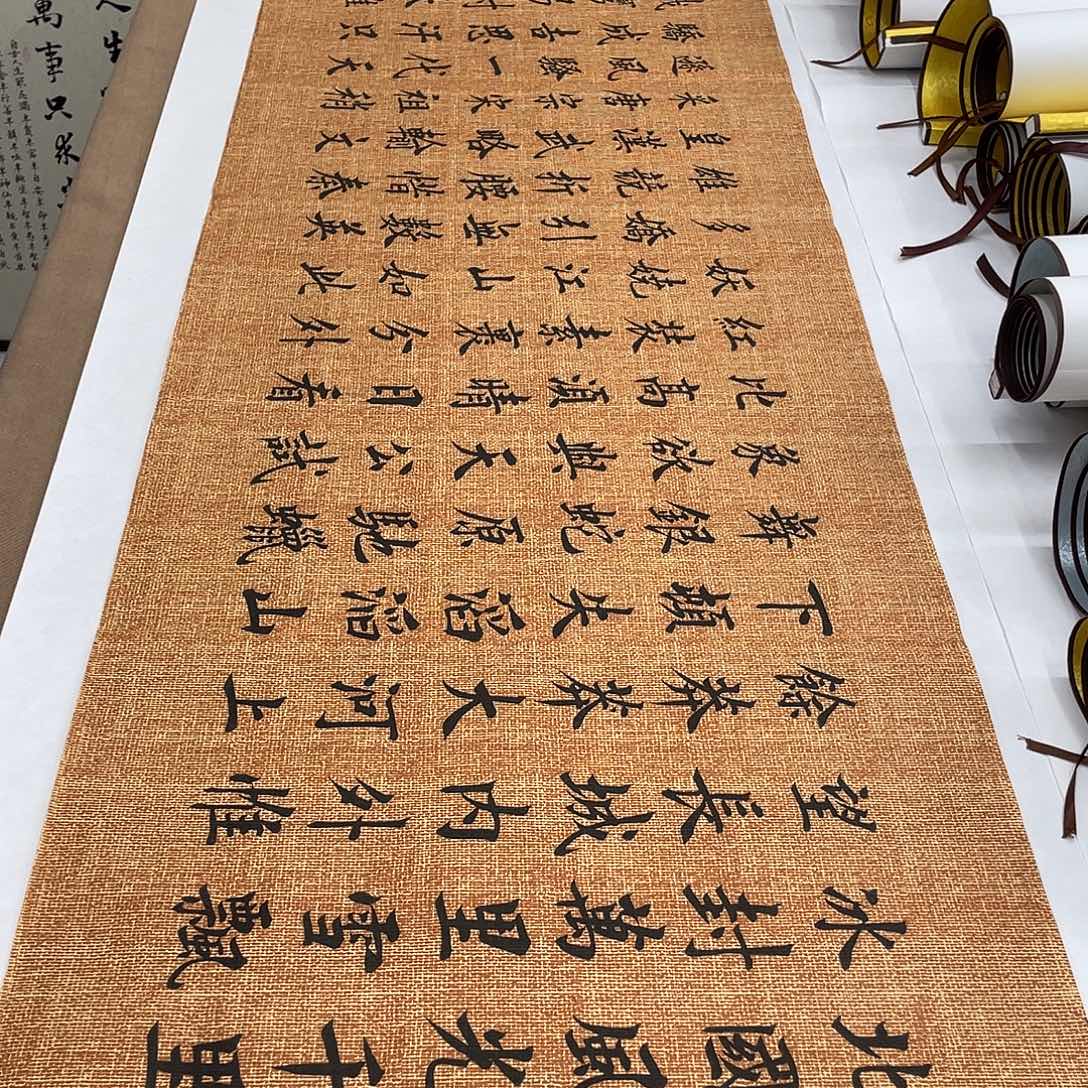 北國風光千里
冰封萬里雪飄
望長城內外惟
餘莽莽大河上
下頓失滔滔山
舞銀蛇原馳蠟
象欲與天公試
比高須晴日看
紅裝素裹分外
妖嬈江山如此
多嬌引無數英
雄競折腰惜秦
皇漢武略輸文
采唐宗宋祖稍
遜風騷一代天
驕成吉思汗只
人生
萬事只求